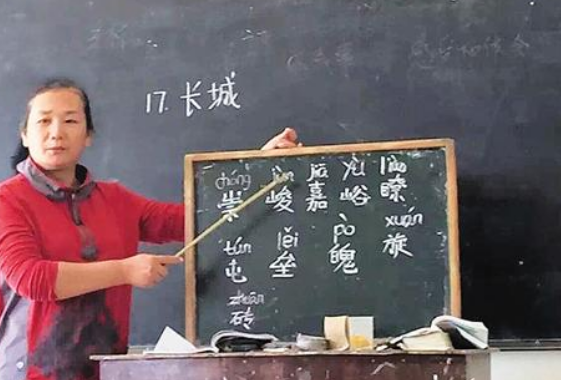 17. 长城
chóng jùn jiā yù liào
崇 峻 嘉 峪 瞭
tún lěi pò xuán
屯 垒 魄 旋
zhuān
砖